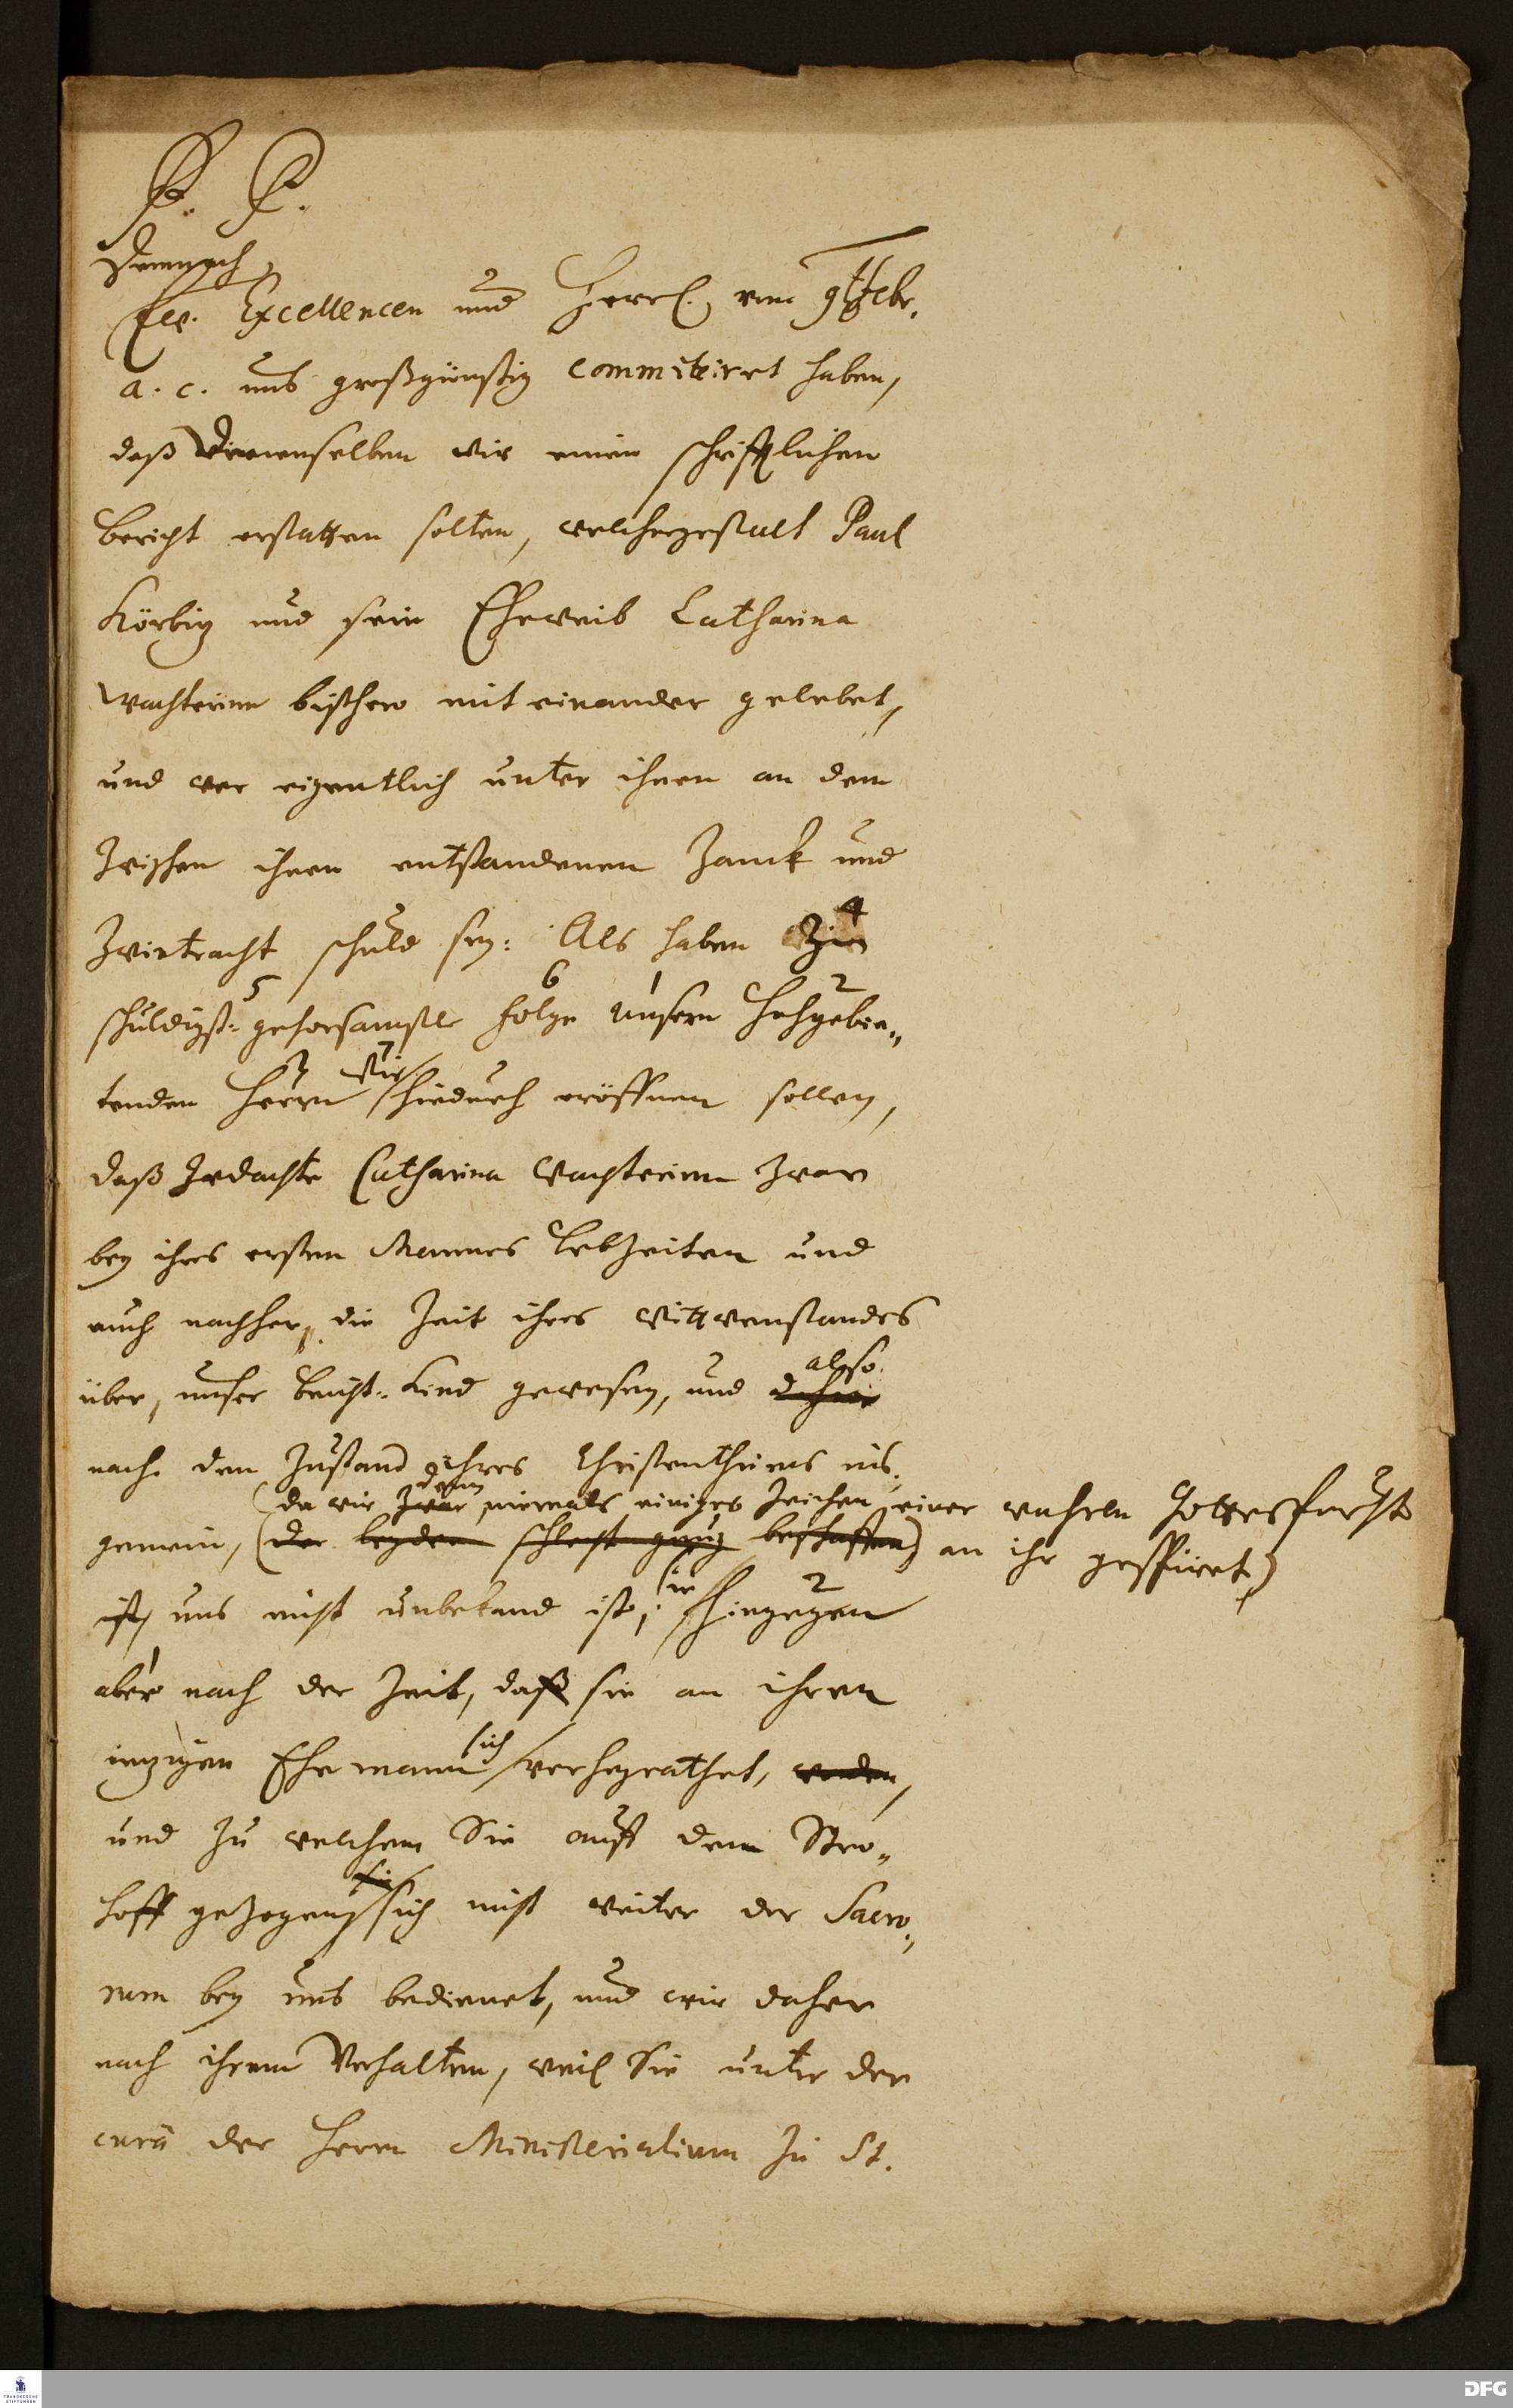 P. P.
Demnach
Ew. Excellencen und Herrl. vom 9 Febr.
a. c. uns großgünstig committiret haben,
daß Denenselben wir einen schrifftlichen
Bericht erstatten solten, welchergestalt Paul
Körbig und sein Eheweib Catharina
Wachterinn bißher mit einander gelebet,
und wer eigentlich unter ihnen an dem
zwischen ihnen entstandenen Zanck und
Zwietracht schuld sey: Als haben zu 4
schuldigst- 5 gehorsamster 6 Folge 1 unsern 2 Hochgebie-
tenden 3 Herrn 7 wir hiedurch eröffnen sollen,
daß gedachte Catharina Wachterinn zwar
bey ihres ersten Mannes Lebzeiten und
auch nachher, die Zeit ihres Wittwenstandes
über, unser Beicht-Kind gewesen, und daher also
nach den Zustand ihres Christenthums ins-
(da wir zwar denn niemals einiges Zeichen einer wahren Gottesfurcht
gemein, (der leyder schlecht ganz beschaffen) an ihr gespüret)
ist, uns nicht unbekand ist; sie 2 hingegen
1 aber nach der Zeit, daß sie an ihren
jetzigen Ehemann sich verheyrathet, worden,
und zu welchem Sie auff dem Stro-
hoff gezogen, sie sich nicht weiter der Sacro-
rum bey uns bedienet, und wir daher
nach ihrem Verhalten, weil Sie unter der
cura der Herrn Ministerialium zu St.
FRANCKESCHE STIFTUNGEN
DFG